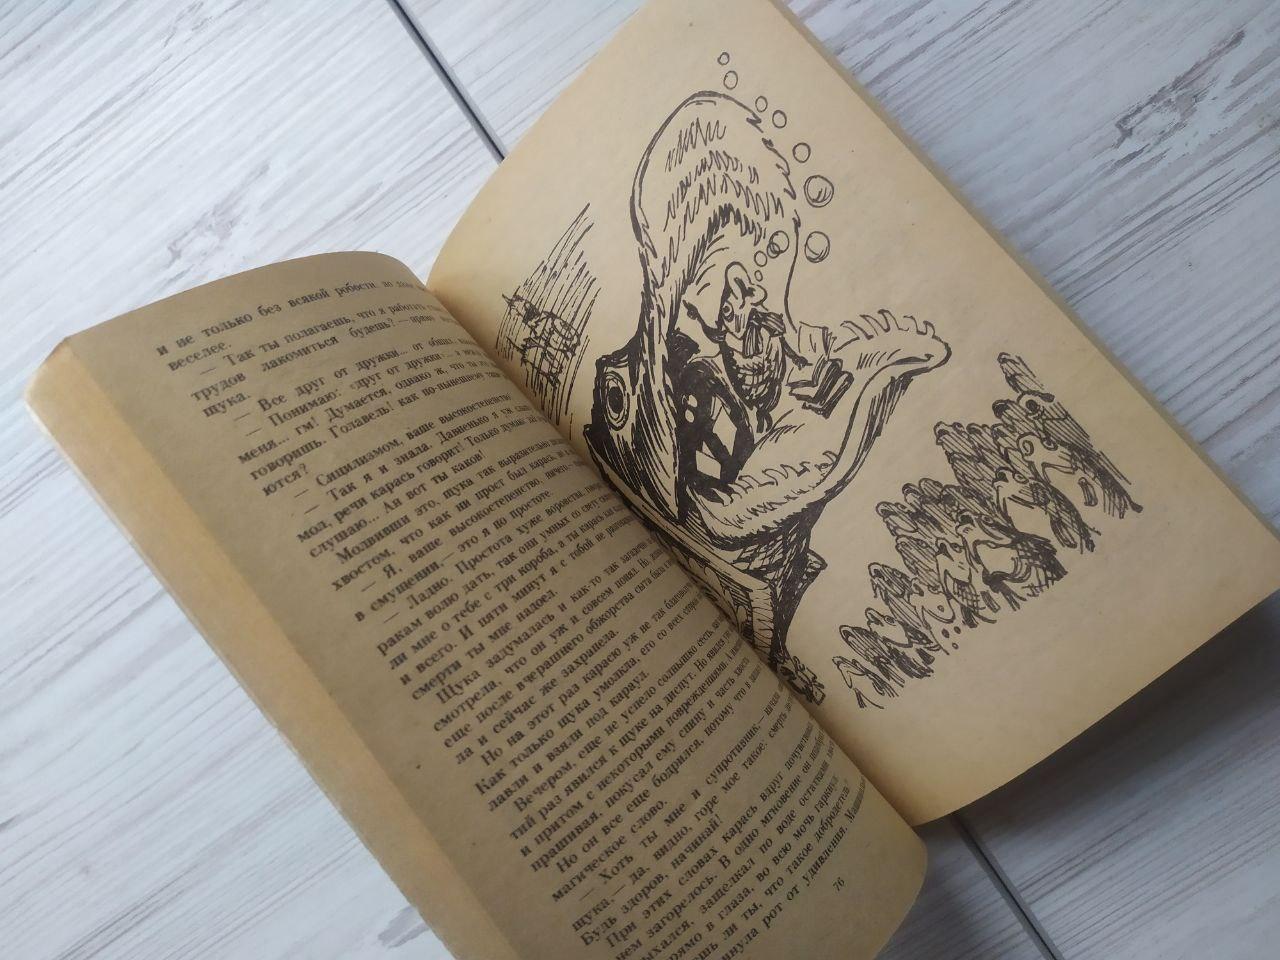 и не только без всякой робости, но даже
веселее.
— Так ты полагаешь, что я работать
трудов лакомиться будешь? — прямо
щука.
— Все друг от дружки... от общих
— Понимаю: «друг от дружки»... а
меня... гм! Думается, однако ж, что ты это
говоришь. Голавель! как по-нынешнему такие
ются?
— Сицилизмом, ваше высокостепенство!
— Так я и знала. Давненько я уж слышу
мол, речи карась говорит! Только думаю: дай
слушаю... Ан вот ты каков!
Молвивши это, щука так выразительно
хвостом, что как ни прост был карась, но и
— Я, ваше высокостепенство, ничего,—
в смущении,— это я по простоте.
— Ладно. Простота хуже воровства, говорят.
ракам волю дать, так они умных со свету
ли мне о тебе с три короба, а ты карась как
и всего. И пяти минут я с тобой не разговариваю,
смерти ты мне надоел.
Щука задумалась и как-то так загадочно
смотрела, что он уж и совсем понял. Но,
еще после вчерашнего обжорства сыта была
ла и сейчас же захрапела.
Но на этот раз карасю уж не так благополучно
Как только щука умолкла, его со всех сторон
лавли и взяли под караул.
Вечером, еще не успело солнышко сесть,
тий раз явился к щуке на диспут. Но явился
и притом с некоторыми повреждениями. А именно:
прашивая, покусал ему спину и часть хвоста
Но он все еще бодрился, потому что в запасе
магическое слово.
— Хоть ты мне и супротивник,— начала
щука,— да, видно, горе мое такое: смерть
Будь здоров, начинай!
При этих словах карась вдруг почувствовал,
нем загорелось. В одно мгновение он подобрал
ыхался, защелкал по воде остатками
рямо в глаза, во всю мочь гаркнул
ешь ли ты, что такое добродетель
инула рот от удивления.
76